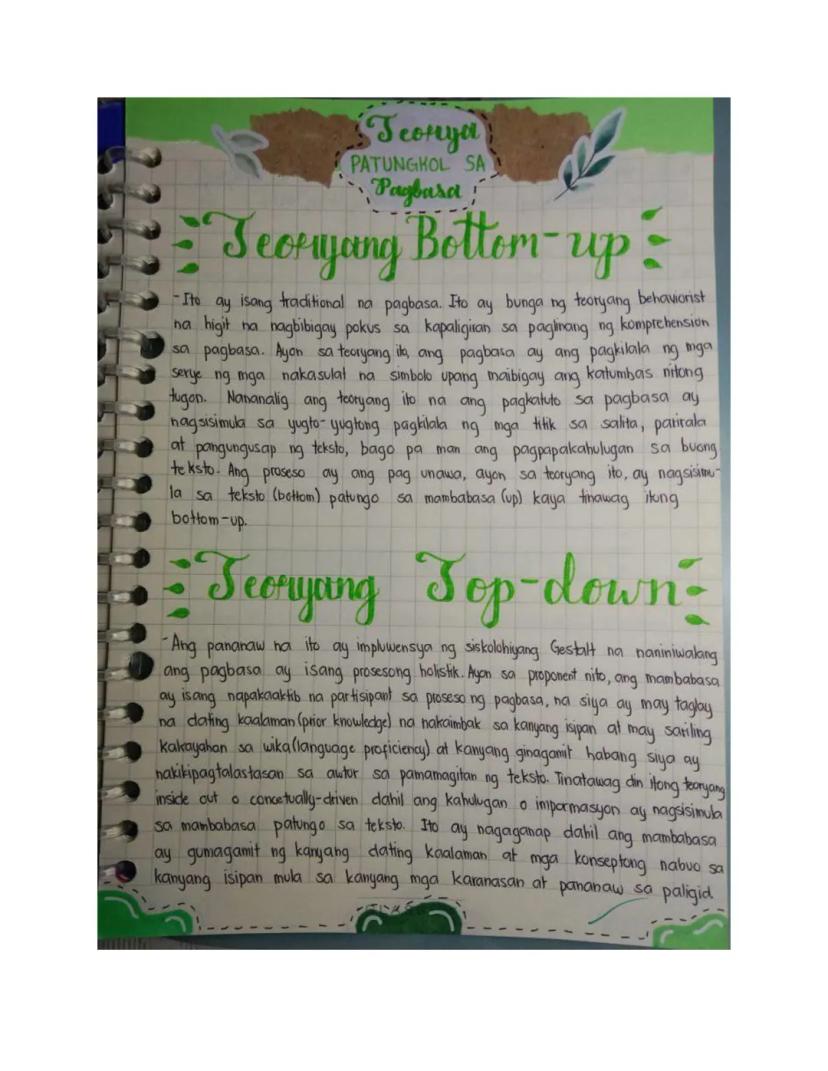 Teorya
PATUNGKOL SA
Pagbasa
Teoryang Bottom-up
-Ito ay isang traditional na pagbasa. Ito ay bunga ng teoryang behaviorist
na higit na nagbibigay pokus sa kapaligiran sa paglinang ng komprehension
sa pagbasa. Ayon sa teoryang ito, ang pagbasa ay ang pagkilala ng mga
serye ng mga nakasulat na simbolo upang maibigay ang katumbas nitong
tugon. Nananalig ang teoryang ito na ang pagkatuto sa pagbasa ay
nagsisimula sa yugto-yugtong pagkilala ng mga titik sa salita, parirala
at pangungusap ng teksto, bago pa man ang pagpapakahulugan sa buong
teksto. Ang proseso ay ang pag unawa, ayon sa teoryang ito, ay nagsisimu-
la sa teksto (bottom) patungo sa mambabasa (up) kaya tinawag itong
bottom-up.
Teoryang Top-down
-Ang pananaw na ito ay impluwensya ng siskolohiyang Gestalt na naniniwalang
ang pagbasa ay isang prosesong holistik. Ayon sa proponent nito, ang mambabasa
ay isang napakaaktib na partisipant sa proseso ng pagbasa, na siya ay may taglay
na dating kaalaman (prior knowledge) na nakaimbak sa kanyang isipan at may sariling
kakayahan sa wika (language proficiency) at kanyang ginagamit habang siya ay
nakikipagtalastasan sa awtor sa pamamagitan ng teksto. Tinatawag din itong teoryang
inside out o concetually-driven dahil ang kahulugan o impormasyon ay nagsisimula
sa mambabasa patungo sa teksto. Ito ay nagaganap dahil ang mambabasa
ay gumagamit ng kanyang dating kaalaman at mga konseptong nabuo sa
kanyang isipan mula sa kanyang mga karanasan at pananaw sa paligid.